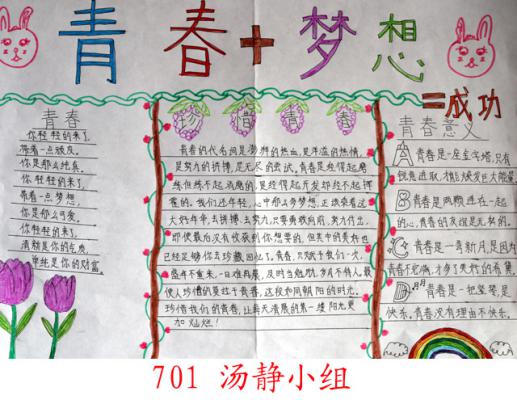 青春+梦想
=成功
青春
你轻轻的来了,
带着一点
你是那么纯真。
你轻轻的来了,
带着一点梦想,
你是那么可爱。
你轻轻的来了,
清颜是你的气质,
单纯是你的财富。
珍惜青春
青春的代名词是沸腾的热血,是洋溢的热情,
是努力的拼搏,是无尽的尝试。青春是经得起磨
练但经不起消磨的,是经得起开发却经不起挥
霍的。我们还年轻,心中那么多梦想,正该乘着这
大好年华去拼搏、去努力,只要勇敢向前,努力付出,
即使最后没有收获到你想要的,但其中的美好也
已经足够你去珍藏回忆了。青春,只赋予我们一次,
盛年不重来,一日难再晨,及时当勉励,岁月不待人。最
使人珍惜的莫过于青春,这段和同朝阳的时光。
珍惜我们的青春,让每天清晨的第一缕阳光更
加灿烂!
青春意义
A 青春是一座金字塔,只有
锐意进取,才能焕发巨大能量。
B 青春是两颗连在一起
的心,青春的友谊是无有的。
C 青春是一弯新月,是因为
青春不完满,才多了美好的希冀。
D 青春是一把竖琴,是
快乐。青春没有理由不快乐。
701 汤静小组